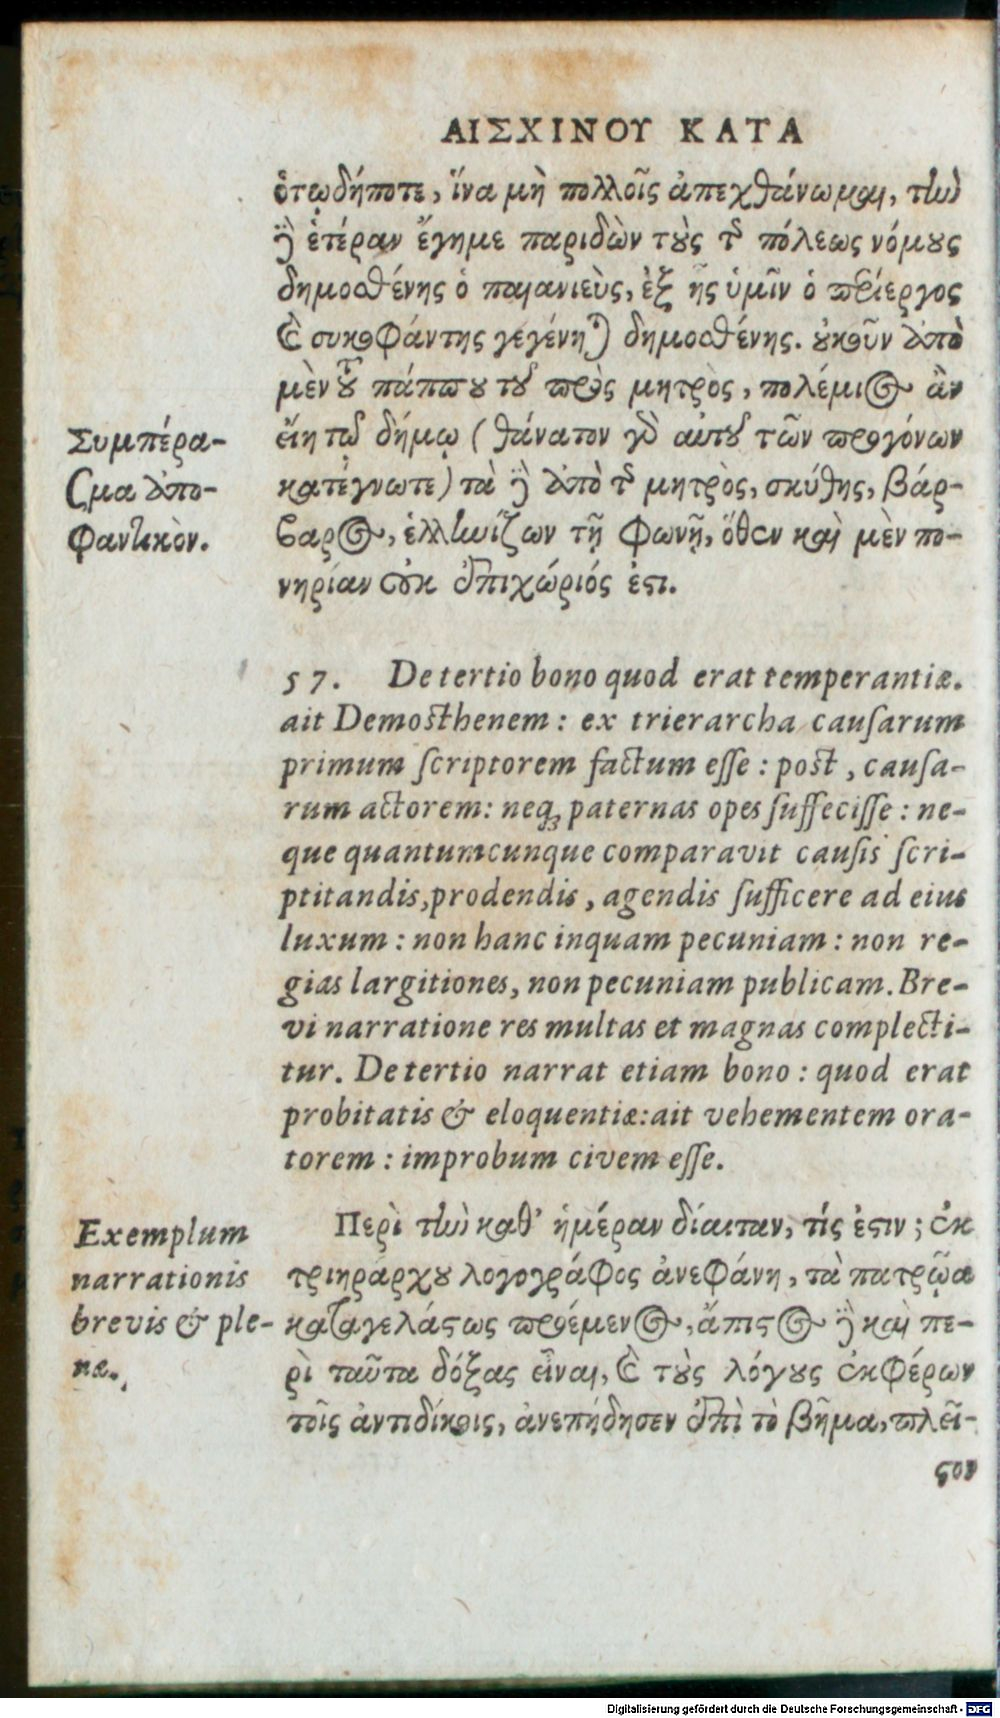 ΑΙΣΧΙΝΟΥ ΚΑΤΑ
ὁτῳδήποτε, ἵνα μὴ πολλοῖς ἀπεχθάνωμαι, τὴν
δὲ ἑτέραν ἔγημε παριδὼν τοὺς τῆς πόλεως νόμους
δημοσθένης ὁ παιανιεὺς, ἐξ ἧς ὑμῖν ὁ περίεργος
καὶ συκοφάντης γεγένηται δημοσθένης. οὐκοῦν ἀπὸ
μὲν τοῦ πάππου τοῦ πρὸς μητρὸς, πολέμιος ἂν
εἴη τῷ δήμῳ (θάνατον γὰρ αὐτοῦ τῶν προγόνων
κατέγνωτε) τὰ δὲ ἀπὸ τῆς μητρὸς, σκύθης, βάρ-
βαρος, ἑλληνίζων τῇ φωνῇ, ὅθεν καὶ μὲν πο-
νηρίαν οὐκ ἐπιχώριός ἐστι.
Συμπέρα-
σμα ἀπο-
φαντικὸν.
57. De tertio bono quod erat temperantiæ.
ait Demosthenem: ex trierarcha causarum
primum scriptorem factum esse: post, causa-
rum actorem: neq; paternas opes suffecisse: ne-
que quantumcunque comparavit causis scri-
ptitandis, prodendis, agendis sufficere ad eius
luxum: non hanc inquam pecuniam: non re-
gias largitiones, non pecuniam publicam. Bre-
vi narratione res multas et magnas complecti-
tur. De tertio narrat etiam bono: quod erat
probitatis & eloquentiæ: ait vehementem ora-
torem: improbum civem esse.
Exemplum
narrationis
brevis & ple-
næ.
Περὶ τὴν καθ' ἡμέραν δίαιταν, τίς ἐστιν; ἐκ
τριηράρχου λογογράφος ἀνεφάνη, τὰ πατρῷα
καταγελάστως προέμενος, ἄπιστος δὲ καὶ πε-
ρὶ ταῦτα δόξας εἶναι, καὶ τοὺς λόγους ἐκφέρων
τοῖς ἀντιδίκοις, ἀνεπήδησεν ἐπὶ τὸ βῆμα, πλεῖ-
στον
Digitalisierung gefördert durch die Deutsche Forschungsgemeinschaft - DFG